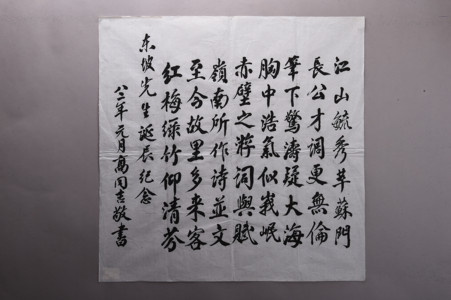 江山毓秀萃蘇門
長公才調更無倫
筆下驚濤疑大海
胸中浩氣似峩岷
赤壁之游詞與賦
嶺南所作詩並文
至今故里多来客
红梅绿竹仰清芬
东坡先生誕辰纪念
八二年元月萬同吉敬書